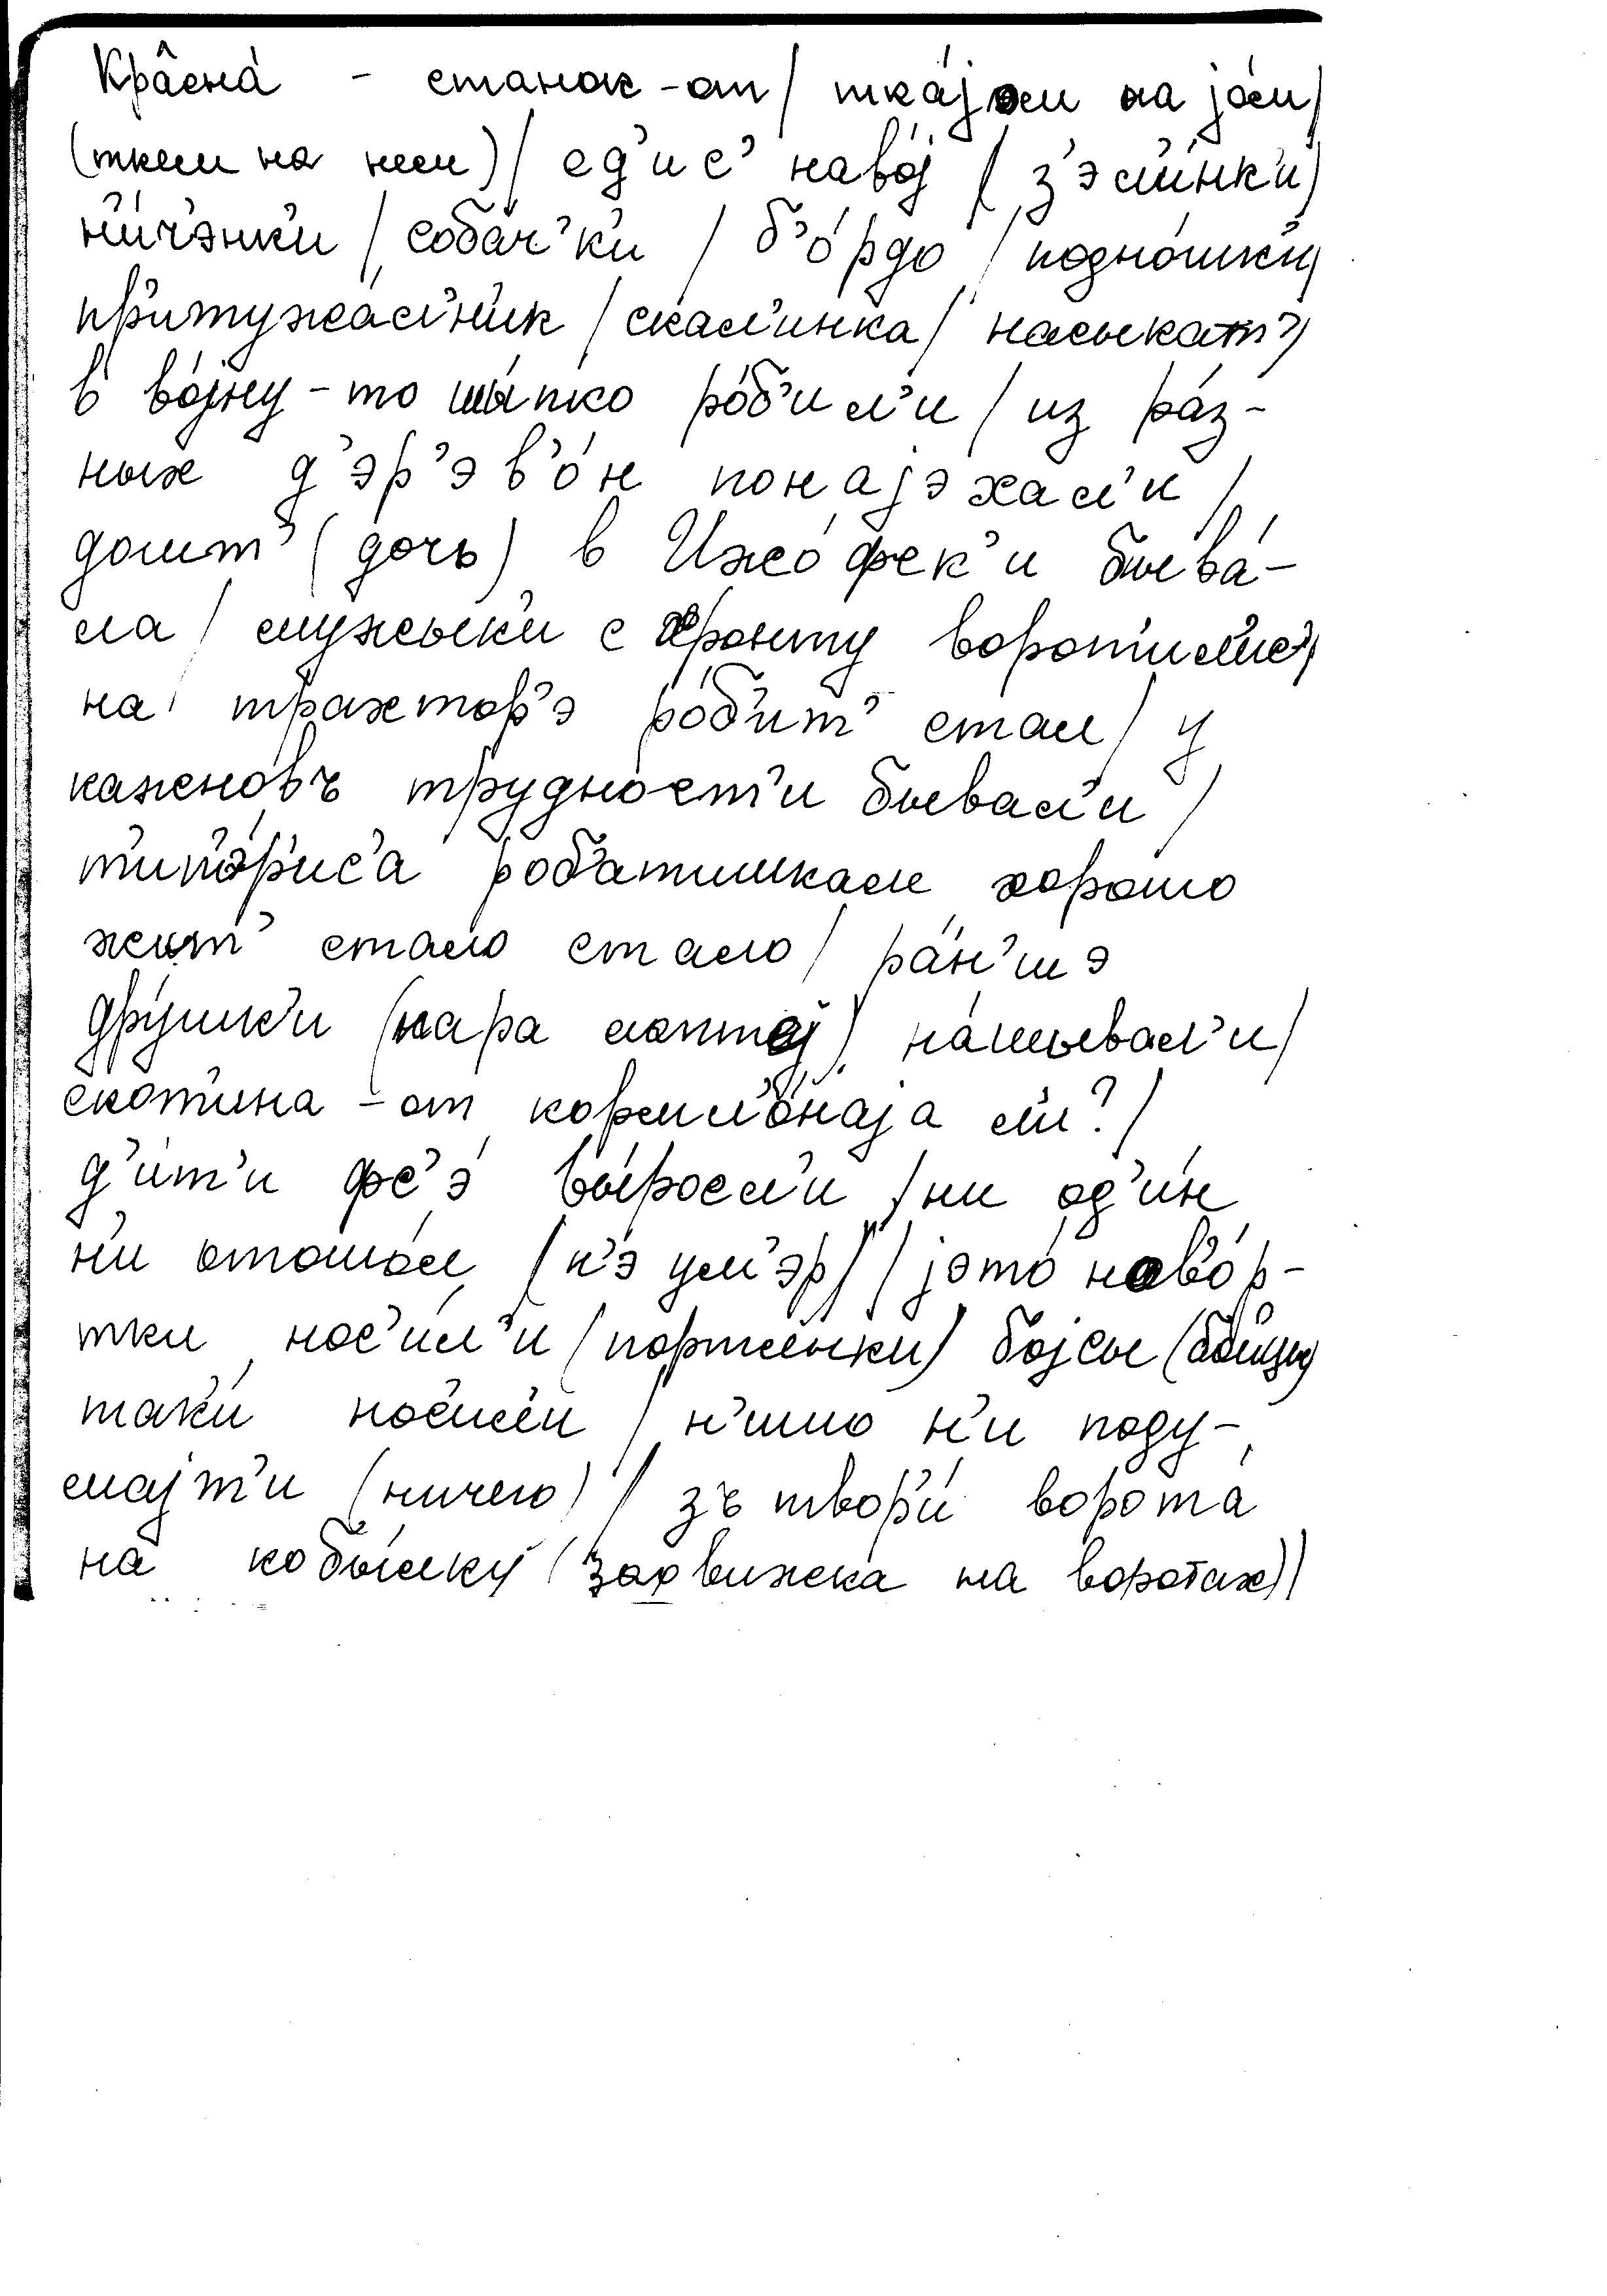 Кра̂сна́ - станок-от / тка́јом на јо́м /
(ткем на нем) / ед'ис' наво́ј / з'эм'и́нк'и /
н'и́ч'энк'и / соба́ч'к'и / б'о́рдо / подно́шк'и /
пр'итужа́л'н'ик / скал'и́нка / насыкат' /
в во́јну-то шы́пко ро́б'ил'и / из ра́з-
ных д'эр'эв'о́н понајэхал'и /
дошт' (дочь) в Ижо́фск'и быва́-
ла / мужык'и с хронту ворот'ил'ис' /
на трахтор'э ро́б'ит' стал / у
кажновъ трудност'и бывал'и /
т'ип'э́р'ис'а роб'атишкам хорошо
жит' стало стало / ра́н'шэ
дру́шк'и (пара лаптеј) нашывал'и /
скот'ина-от кормл'о́наја л'и? /
д'ит'и фс'э́ вы́росл'и / ни од'и́н
н'и отошо́л (н'э ум'эр) / јэто́ нав'о́р-
тки нос'и́л'и (портянки) бојсы (бойцы)
так'и́ нос'ил'и / н'ишо н'и поду-
мајт'и (ничего) / зътвор'и́ ворота́
на кобы́лку (задвижка на воротах) /